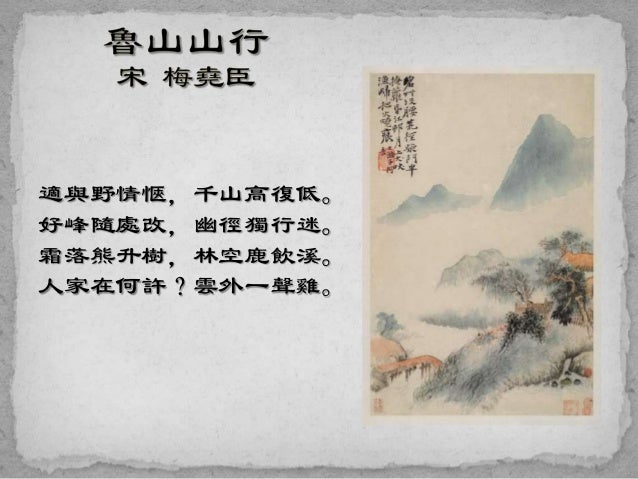 魯山山行
宋 梅堯臣
適與野情愜，千山高復低。
好峰隨處改，幽徑獨行迷。
霜落熊升樹，林空鹿飲溪。
人家在何許？雲外一聲雞。